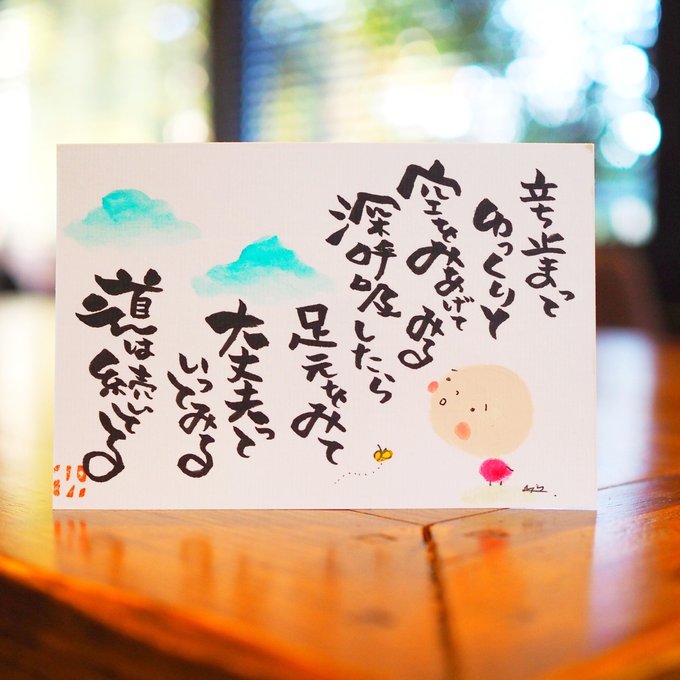 立ち止まって
ゆっくりと
空をみあげてみる
深呼吸したら
足元をみて
大丈夫って
いってみる
道は続いてる